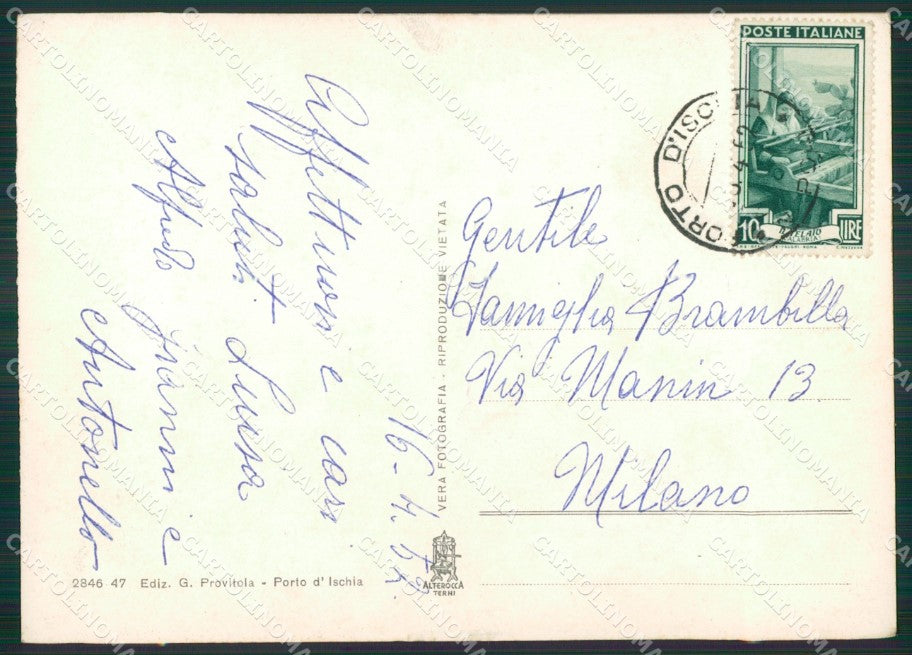 16-4.52.
Affettuosi e cari
saluti Luisa
Alfredo Gianni e
Antonello
Gentile
Famiglia Brambilla
Via Manin 13.
Milano
VERA FOTOGRAFIA - RIPRODUZIONE VIETATA
2846 47 Ediz. G. Provitola - Porto d' Ischia
ALTEROCCA
TERNI
POSTE ITALIANE
10 LIRE
IL TELAIO
CALABRIA
PORTO D'ISCHIA
CARTOLINOMANIA